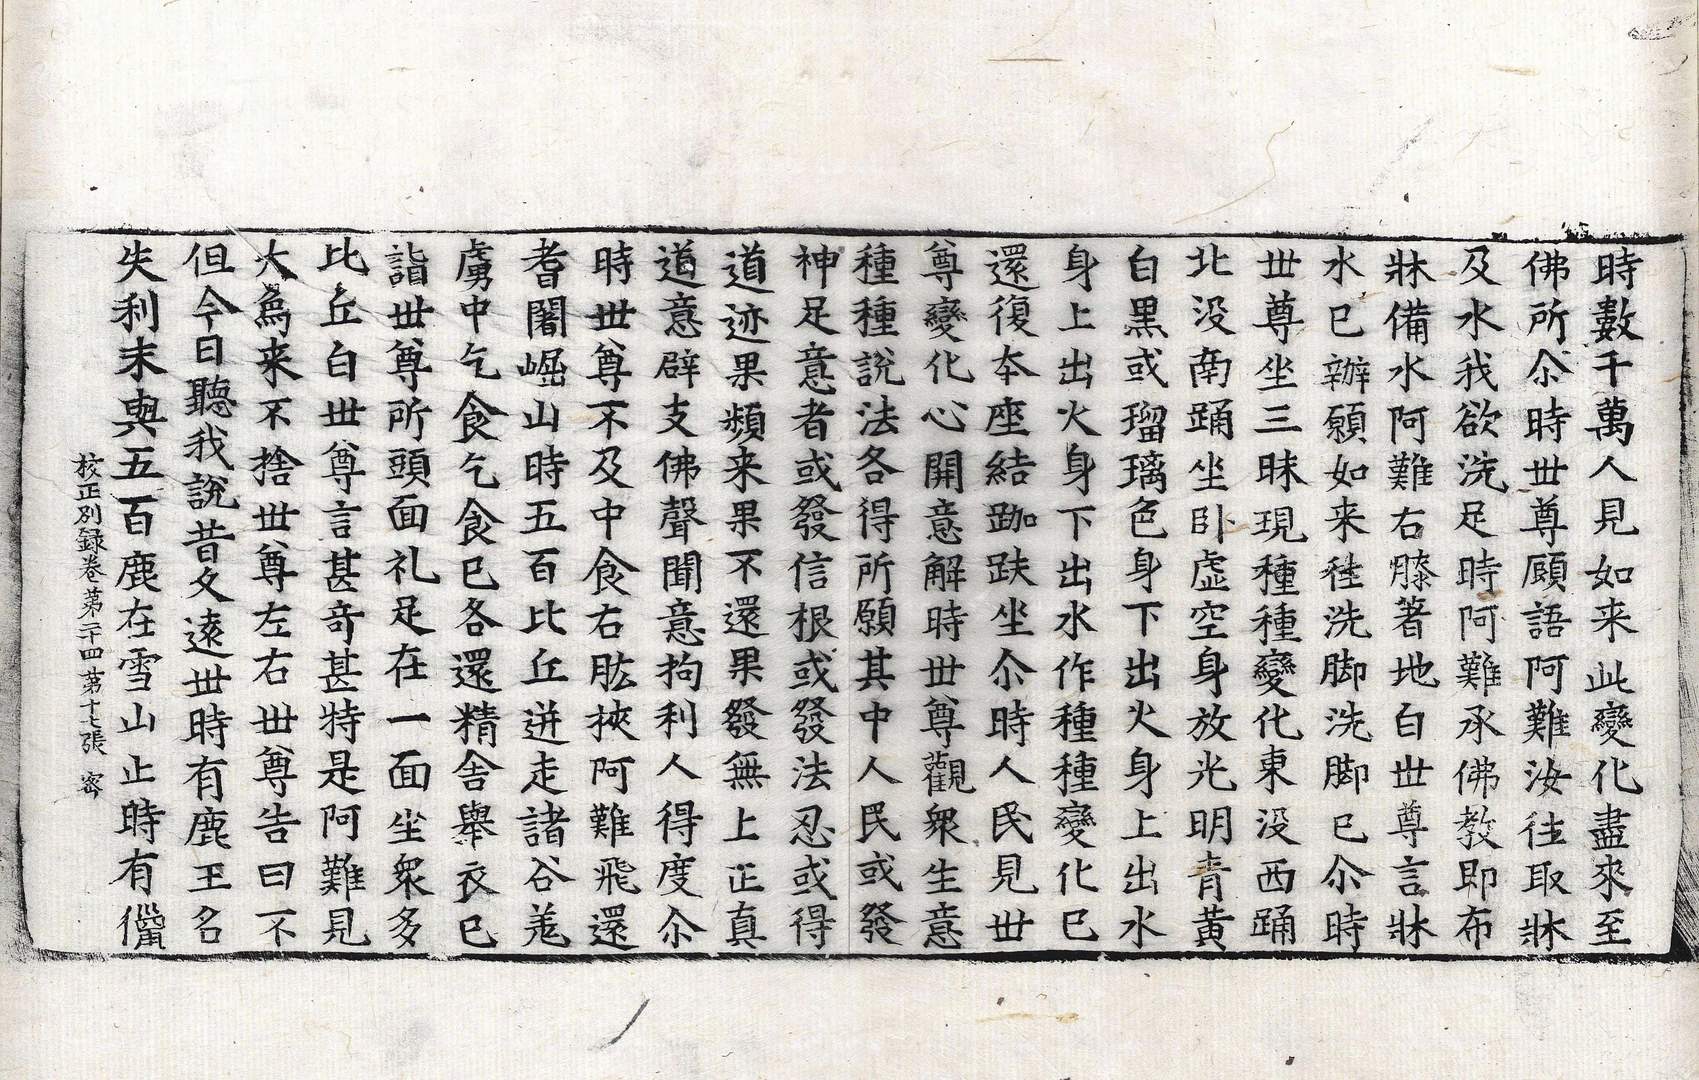 時數千萬人見如来此變化盡來至
佛所尒時世尊顧語阿難汝往取牀
及水我欲洗足時阿難承佛教即布
牀備水阿難右膝著地白世尊言牀
水已辦願如来往洗脚洗脚已尒時
世尊坐三昧現種種變化東没西踊
北没南踊坐卧虛空身放光明青黃
白黑或瑠璃色身下出火身上出水
身上出火身下出水作種種變化已
還復本座結跏趺坐尒時人民見世
尊變化心開意解時世尊觀衆生意
種種說法各得所願其中人民或發
神足意者或發信根或發法忍或得
道迹果頻来果不還果發無上正真
道意辟支佛聲聞意拘利人得度尒
時世尊不及中食右肱挾阿難飛還
耆闍崛山時五百比丘迸走諸谷羗
虜中乞食乞食已各還精舍舉衣已
詣世尊所頭面礼足在一面坐衆多
比丘白世尊言甚奇甚特是阿難見
大為来不捨世尊左右世尊告曰不
但今日聽我說昔久遠世時有鹿王名
失利末與五百鹿在雪山止時有儠
校正別録卷第二十四 第十七張 密